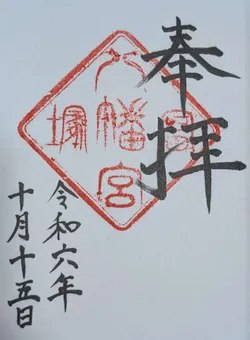 奉拝
八幡宮
塚
令和六年
十月十五日